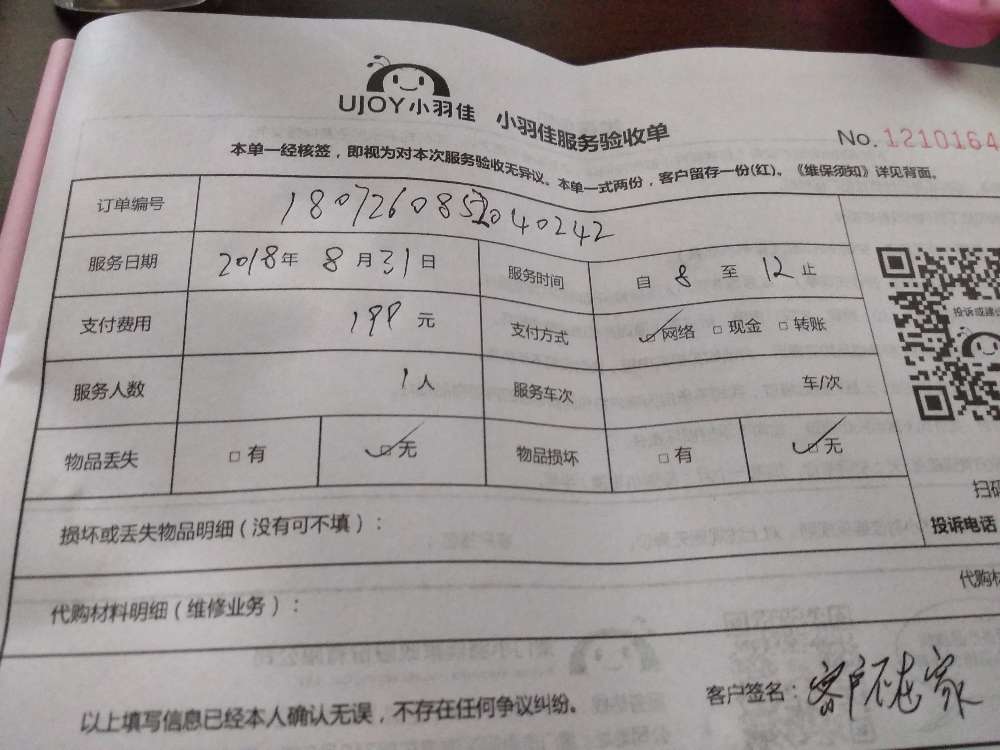 UJOY小羽佳 小羽佳服务验收单
No. 1210164
本单一经核签，即视为对本次服务验收无异议。本单一式两份，客户留存一份(红)。《维保须知》详见背面。
订单编号 1807260852040242
服务日期 2018年 8月31日 服务时间 自 8 至 12 止
支付费用 199 元 支付方式 网络 □现金 □转账
服务人数 1人 服务车次 车/次
物品丢失 □有 □无 物品损坏 □有 □无
投诉或建
扫码
投诉电话
损坏或丢失物品明细（没有可不填）：
代购材料明细（维修业务）： 代购材
以上填写信息已经本人确认无误，不存在任何争议纠纷。 客户签名： 客户不在家